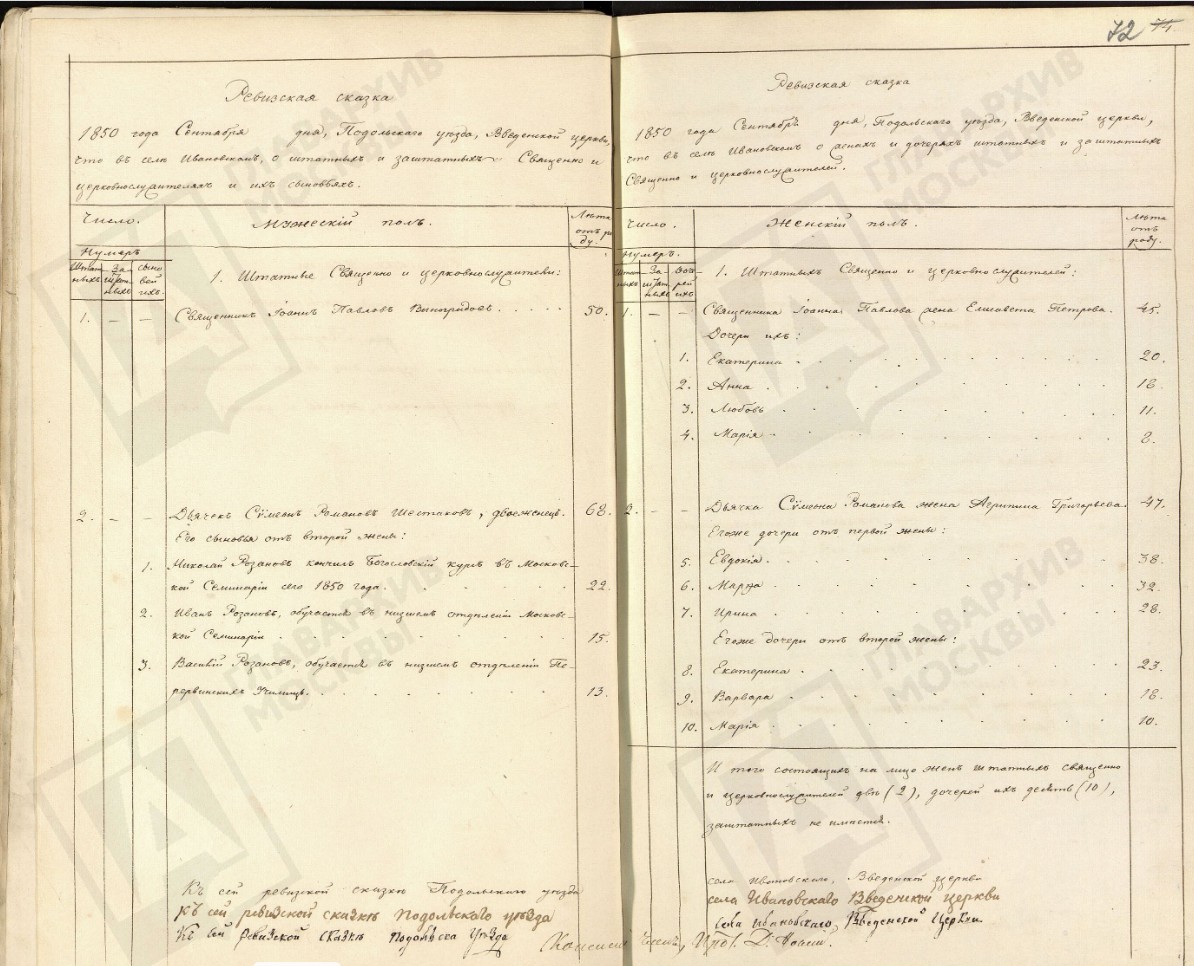 72 74
Ревизская сказка
1850 года Сентября дня, Подольскаго уѣзда, Введенской церкви,
что въ селѣ Ивановскомъ, о штатныхъ и заштатныхъ Священно и
церковнослужителяхъ и ихъ сыновьяхъ.
Число. Мужескій полъ. Лѣта отъ роду.
Нумеръ
Штатныхъ Заштатныхъ сыновей ихъ.
1. Штатные Священно и церковнослужители:
1. — — Священникъ Іоаннъ Павловъ Виноградовъ. 50.
2. — — Дьячекъ Сѵмеонъ Романовъ Шестаковъ, двоеженецъ. 68.
Его сыновья отъ второй жены:
1. Николай Розановъ кончилъ Богословскій курсъ въ Москов-
ской Семинаріи сего 1850 года. 22.
2. Иванъ Розановъ, обучается въ низшемъ отдѣленіи Москов-
ской Семинаріи 15.
3. Василій Розановъ, обучается въ низшемъ отдѣленіи Пе-
рервинскихъ Училищъ. 13.
Къ сей ревизской сказкѣ Подольскаго уѣзда
Къ сей ревизской сказкѣ Подольскаго уѣзда
Къ сей Ревизской сказкѣ Подольска Уѣзда
Ревизская сказка
1850 года Сентябрь дня, Подольскаго уѣзда, Введенской церкви,
что въ селѣ Ивановскомъ о женахъ и дочеряхъ штатныхъ и заштатныхъ
Священно и церковнослужителей.
Число. Женскій полъ. Лѣта отъ роду.
Нумеръ.
Штатныхъ Заштатныхъ Дочерей ихъ
1. Штатныхъ Священно и церковнослужителей:
1. — — Священника Іоанна Павлова жена Елисавета Петрова. 45.
Дочери ихъ:
1. Екатерина 20.
2. Анна 18.
3. Любовь 11.
4. Марія 8.
2. — — Дьячка Сѵмеона Романова жена Агрипина Григорьева. 47.
Егоже дочери отъ первой жены:
5. Евдокія 38.
6. Марѳа 32.
7. Ирина 28.
Егоже дочери отъ второй жены:
8. Екатерина 23.
9. Варвара 18.
10. Марія 10.
И того состоящихъ на лицо женъ штатныхъ священно
и церковнослужителей двѣ (2), дочерей ихъ десять (10),
заштатныхъ не имѣется.
села Ивановскаго, Введенской церкви
села Ивановскаго Введенской церкви
села Ивановскаго, Введенской Церкви
ГЛАВАРХИВ
МОСКВЫ
ГЛАВАРХИВ
МОСКВЫ
ГЛАВАРХИВ
МОСКВЫ
ГЛАВАРХИВ
МОСКВЫ